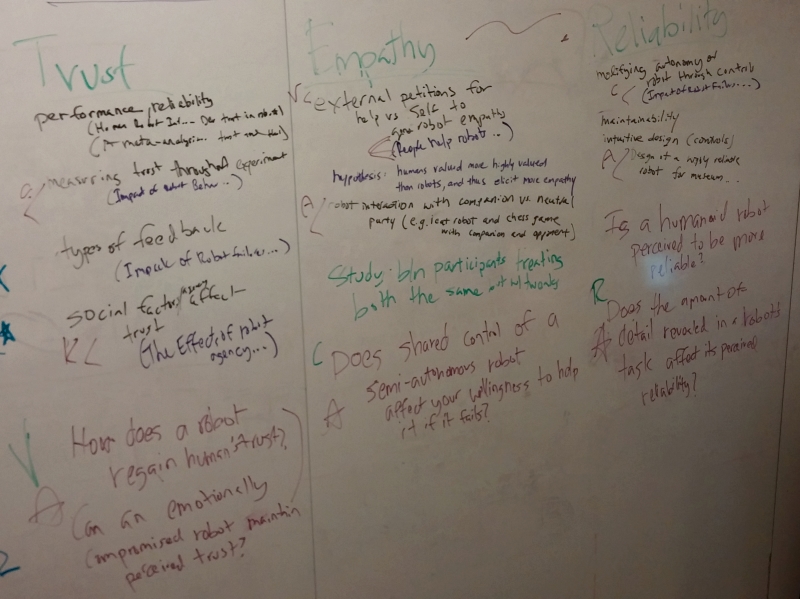 Trust
performance, reliability
(Human Robot Int... Des trust in robots)
(A meta-analysis... trust
measuring trust throughout experiment
(Impact of Robot Behav...)
types of feedback
(Impact of Robot Failures...)
social factors/ affect
trust
(The Effects of robot
agency...)
How does a robot
regain human's trust?
Can an emotionally
compromised robot maintain
perceived trust?
Empathy
external petitions for
help vs self to
robot empathy
(People help robots...)
hypothesis: humans valued more highly valued
than robots, and thus elicit more empathy
robot interaction with companion vs. neutral
party (e.g. icat robot and chess game
with companion and opponent)
Study: b/n participants treating
both the same
Does shared control of a
semi-autonomous robot
affect your willingness to help
it if it fails?
Reliability
modifying autonomy of
robot through controls
(Impact of Robot Failures...)
maintainability
intuitive design (controls)
Design of a reliable
robot for museum...
Is a humanoid robot
perceived to be more
reliable?
Does the amount of
detail revealed in a robot's
task affect its perceived
reliability?
C
A
R
A
V
A